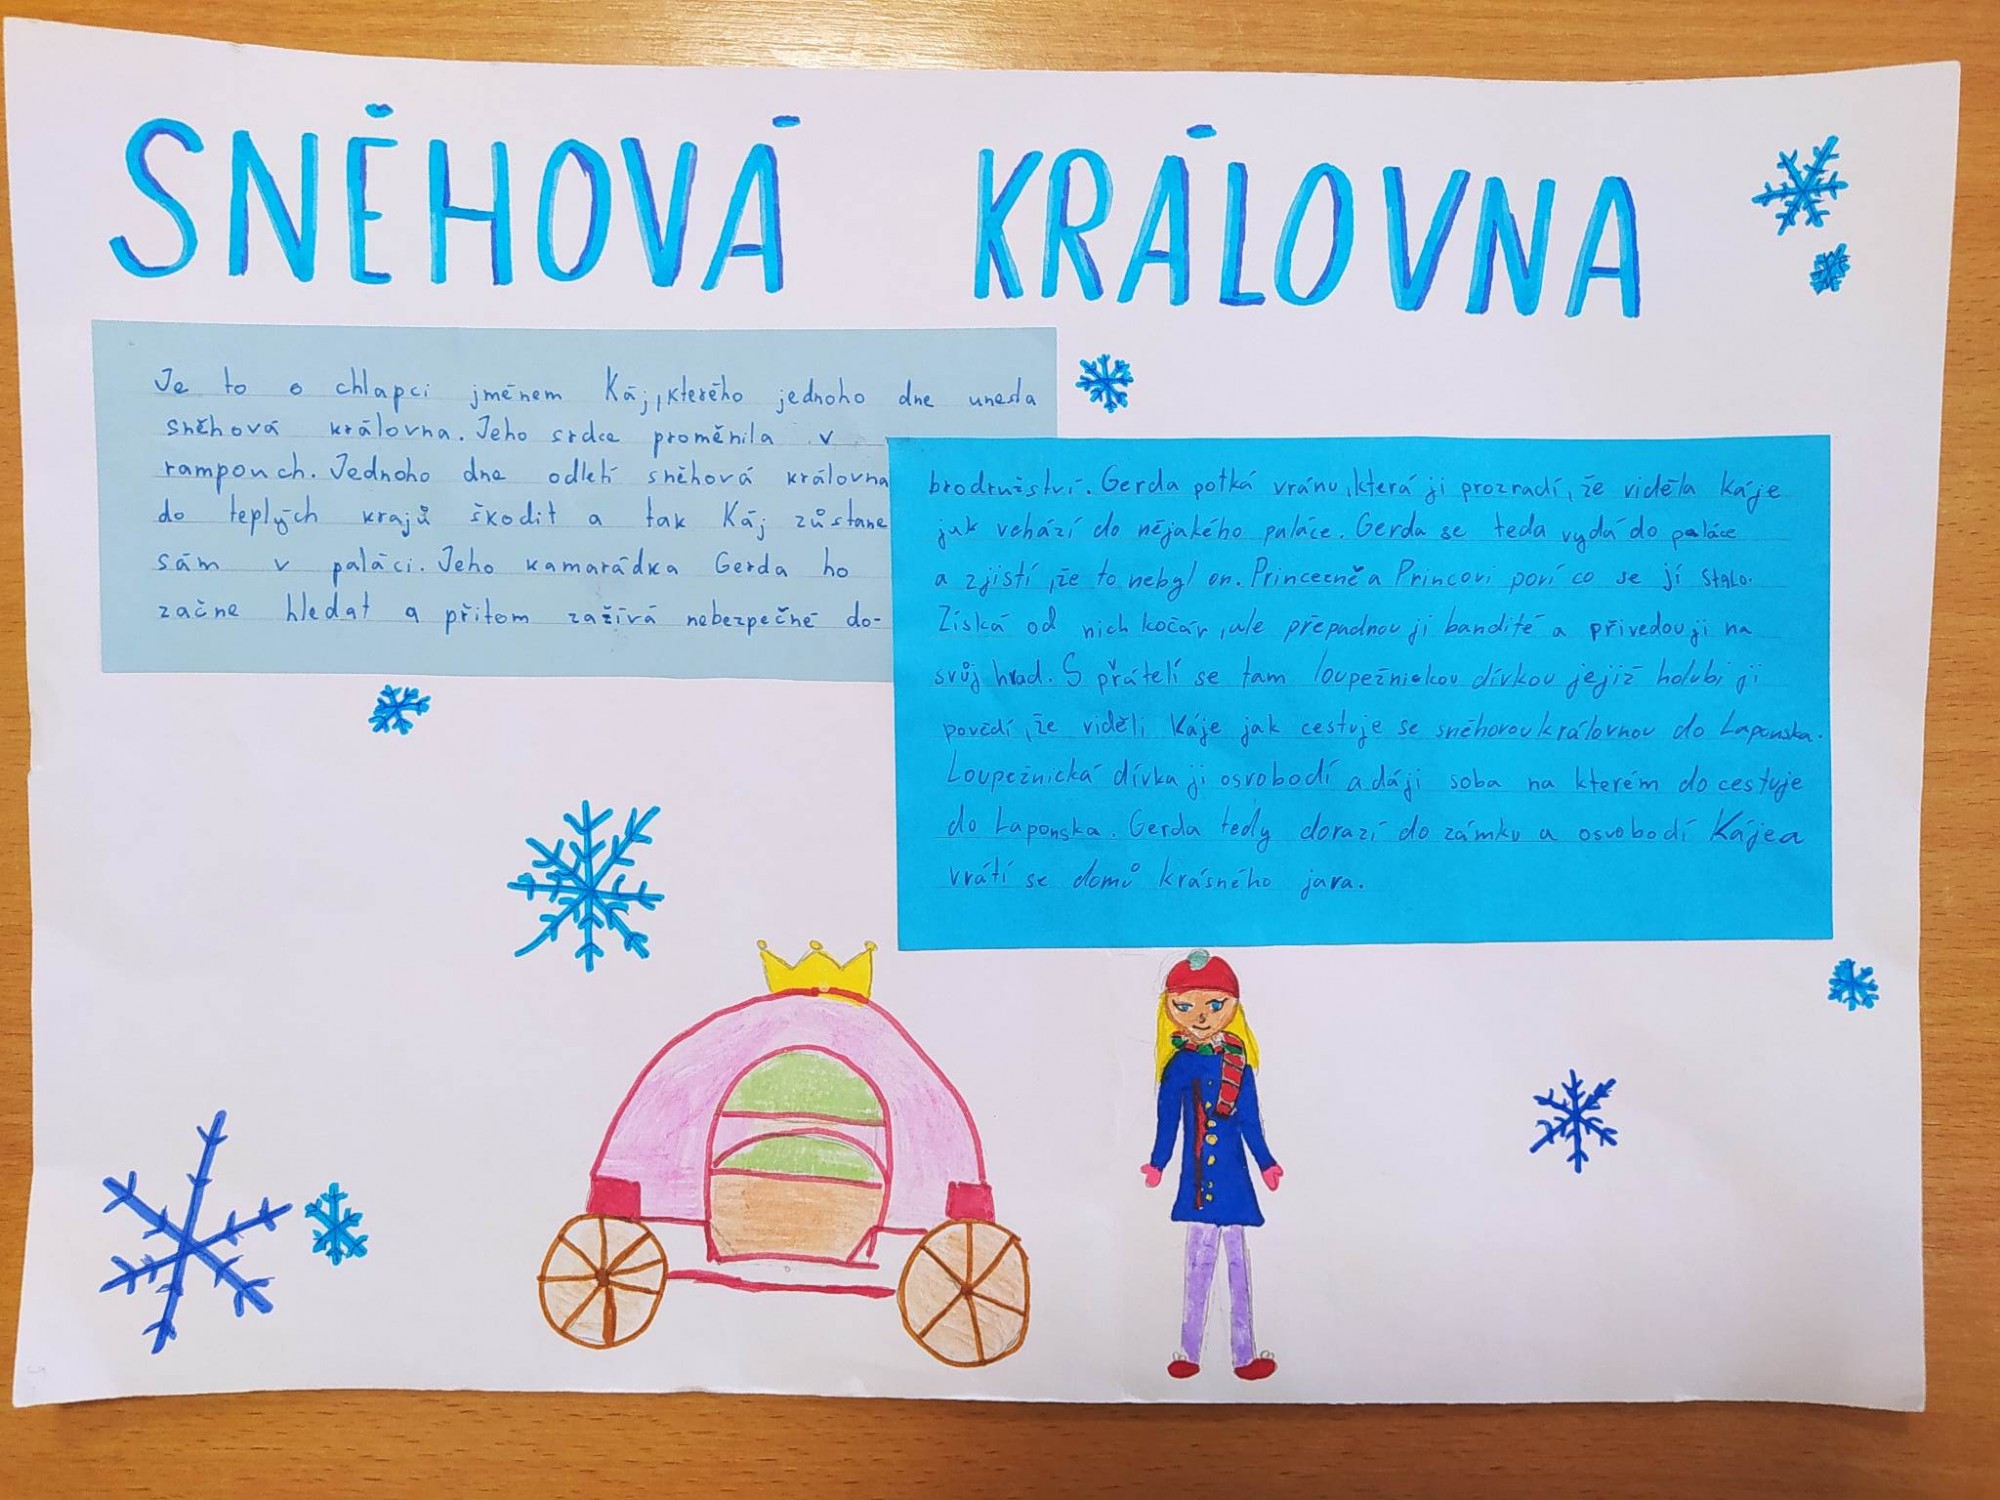 SNĚHOVÁ KRÁLOVNA
Je to o chlapci jménem Káj, kterého jednoho dne unesla
sněhová královna. Jeho srdce proměnila v
rampouch. Jednoho dne odletí sněhová královna
do teplých krajů škodit a tak Káj zůstane
sám v paláci. Jeho kamarádka Gerda ho
začne hledat a přitom zažívá nebezpečné do-
brodružství. Gerda potká vránu, která ji prozradí, že viděla Káje
jak vchází do nějakého paláce. Gerda se teda vydá do paláce
a zjistí, že to nebyl on. Princezně a Princovi poví co se jí stalo.
Získá od nich kočár, ale přepadnou ji bandité a přivedou ji na
svůj hrad. S přátelí se tam loupežnickou dívkou jejíž holubi ji
povědí, že viděli Káje jak cestuje se sněhovou královnou do Laponska.
Loupežnická dívka ji osvobodí a dá ji soba na kterém docestuje
do Laponska. Gerda tedy dorazí do zámku a osvobodí Káje a
vrátí se domů krásného jara.